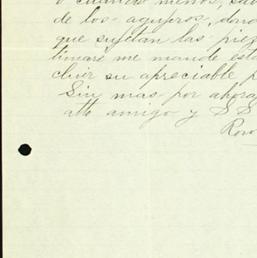 o cuando menos, sab
de los agujeros, dond
que sujetan las piez
timaré me mande esta
cluir su apreciable p
Sin mas por ahora
atto amigo y S S
Rom